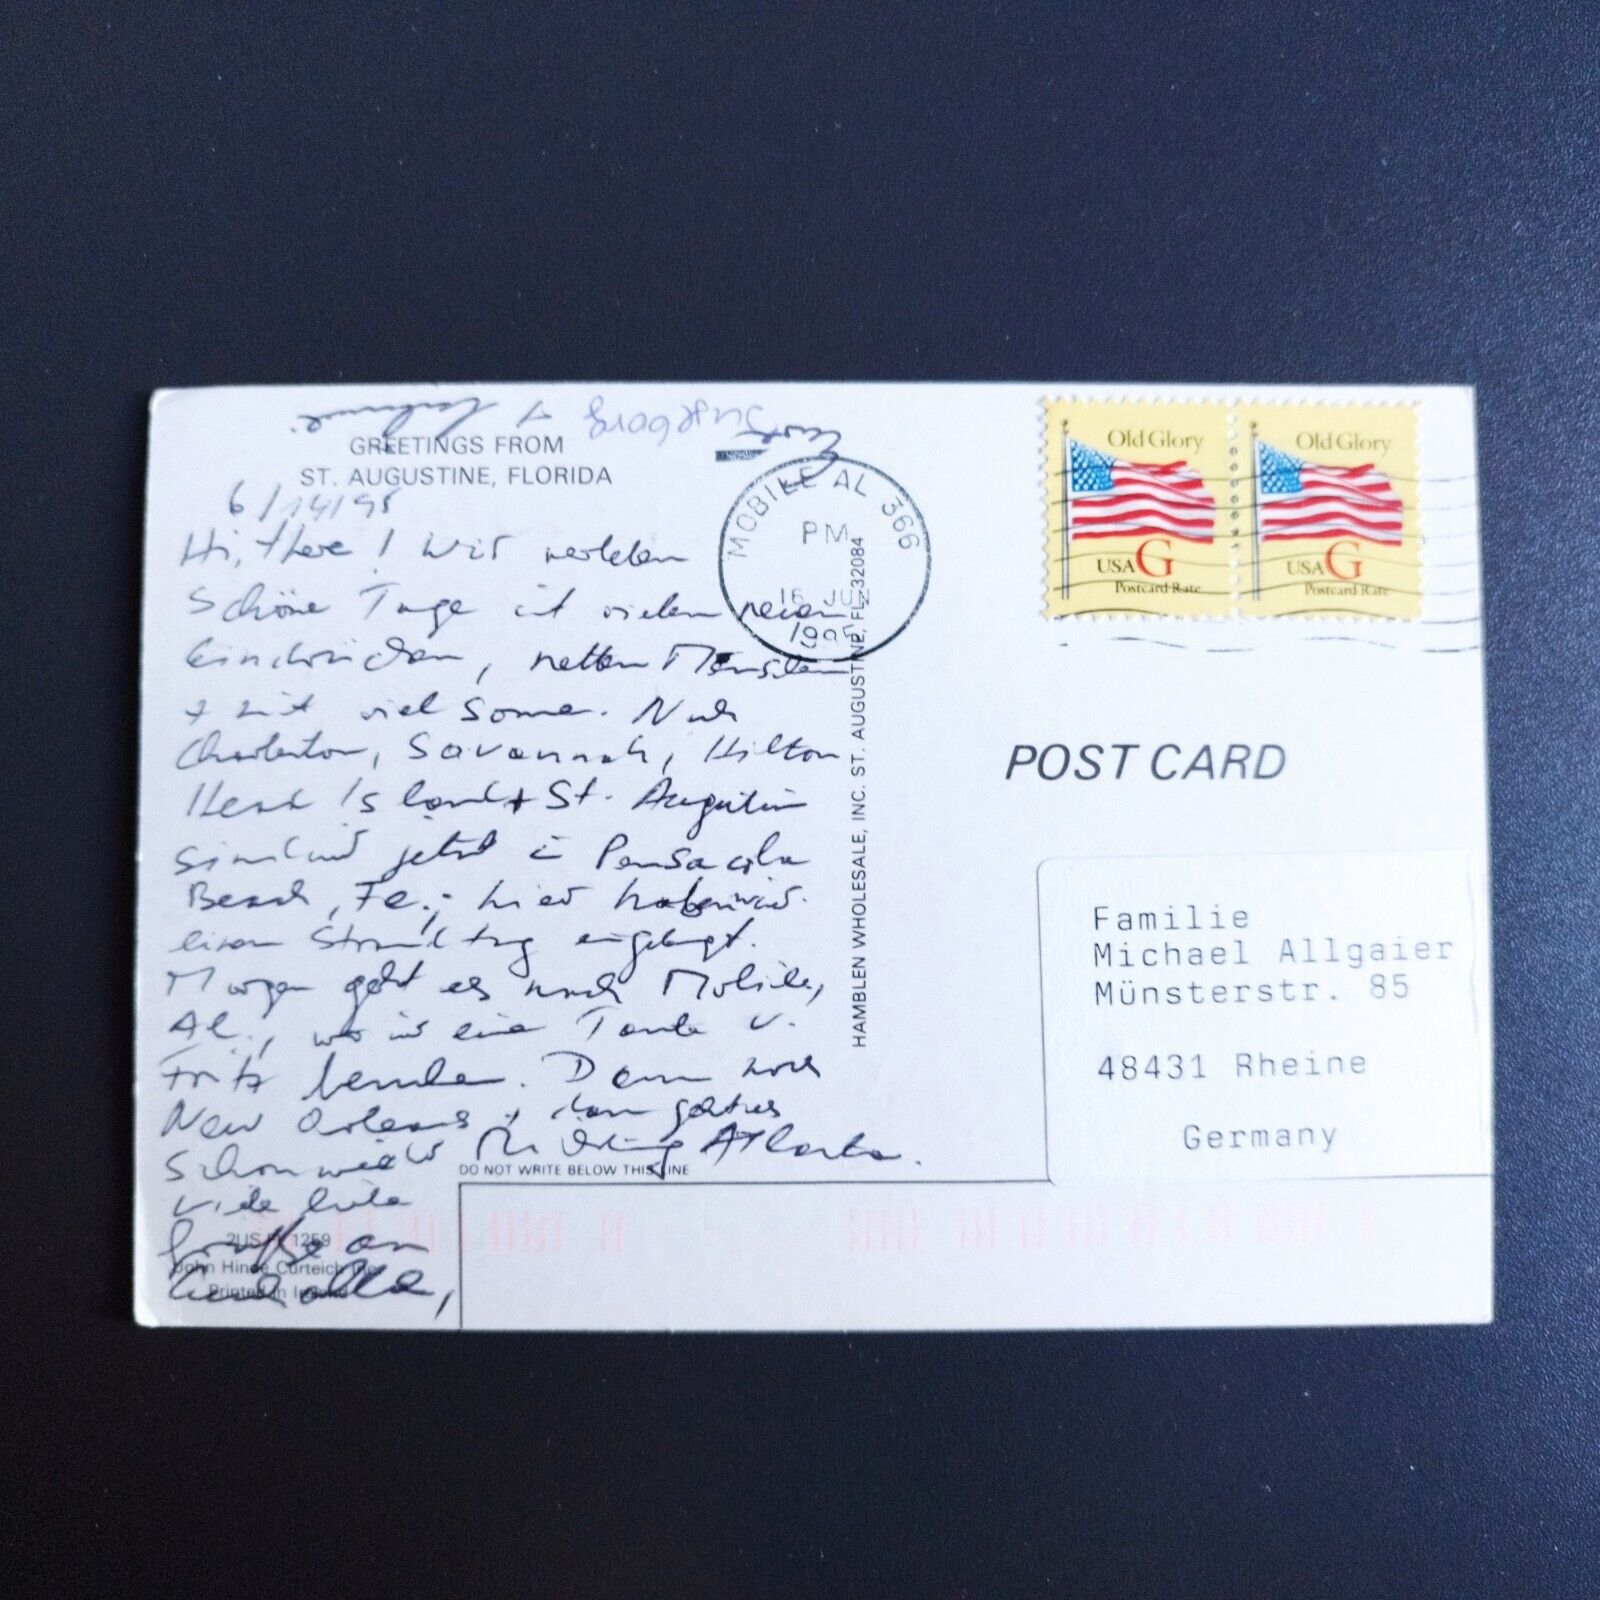 GREETINGS FROM
ST. AUGUSTINE, FLORIDA
6/14/95
Hi, there! Wir verleben
schöne Tage mit vielen neuen
Eindrücken, netten Menschen
+ mit viel Sonne. Nach
Charleston, Savannah, Hilton
Head Island + St. Augustin
sind wir jetzt in Pensacola
Beach, Fl.; hier haben wir
einen Strandtag eingelegt.
Morgen geht es nach Mobile,
Al., wo wir eine Tante v.
Fritz besuchen. Dann noch
New Orleans + dann geht es
schon wieder Richtung Atlanta.
Viele liebe
Grüße an
alle,
MOBILE AL 366
PM
16 JUN
1995
Old Glory
USA G
Postcard Rate
Old Glory
USA G
Postcard Rate
HAMBLEN WHOLESALE, INC. ST. AUGUSTINE, FL 32084
POST CARD
Familie
Michael Allgaier
Münsterstr. 85
48431 Rheine
Germany
DO NOT WRITE BELOW THIS LINE
1259
John Hinde Curteich Inc.
Printed in Ireland